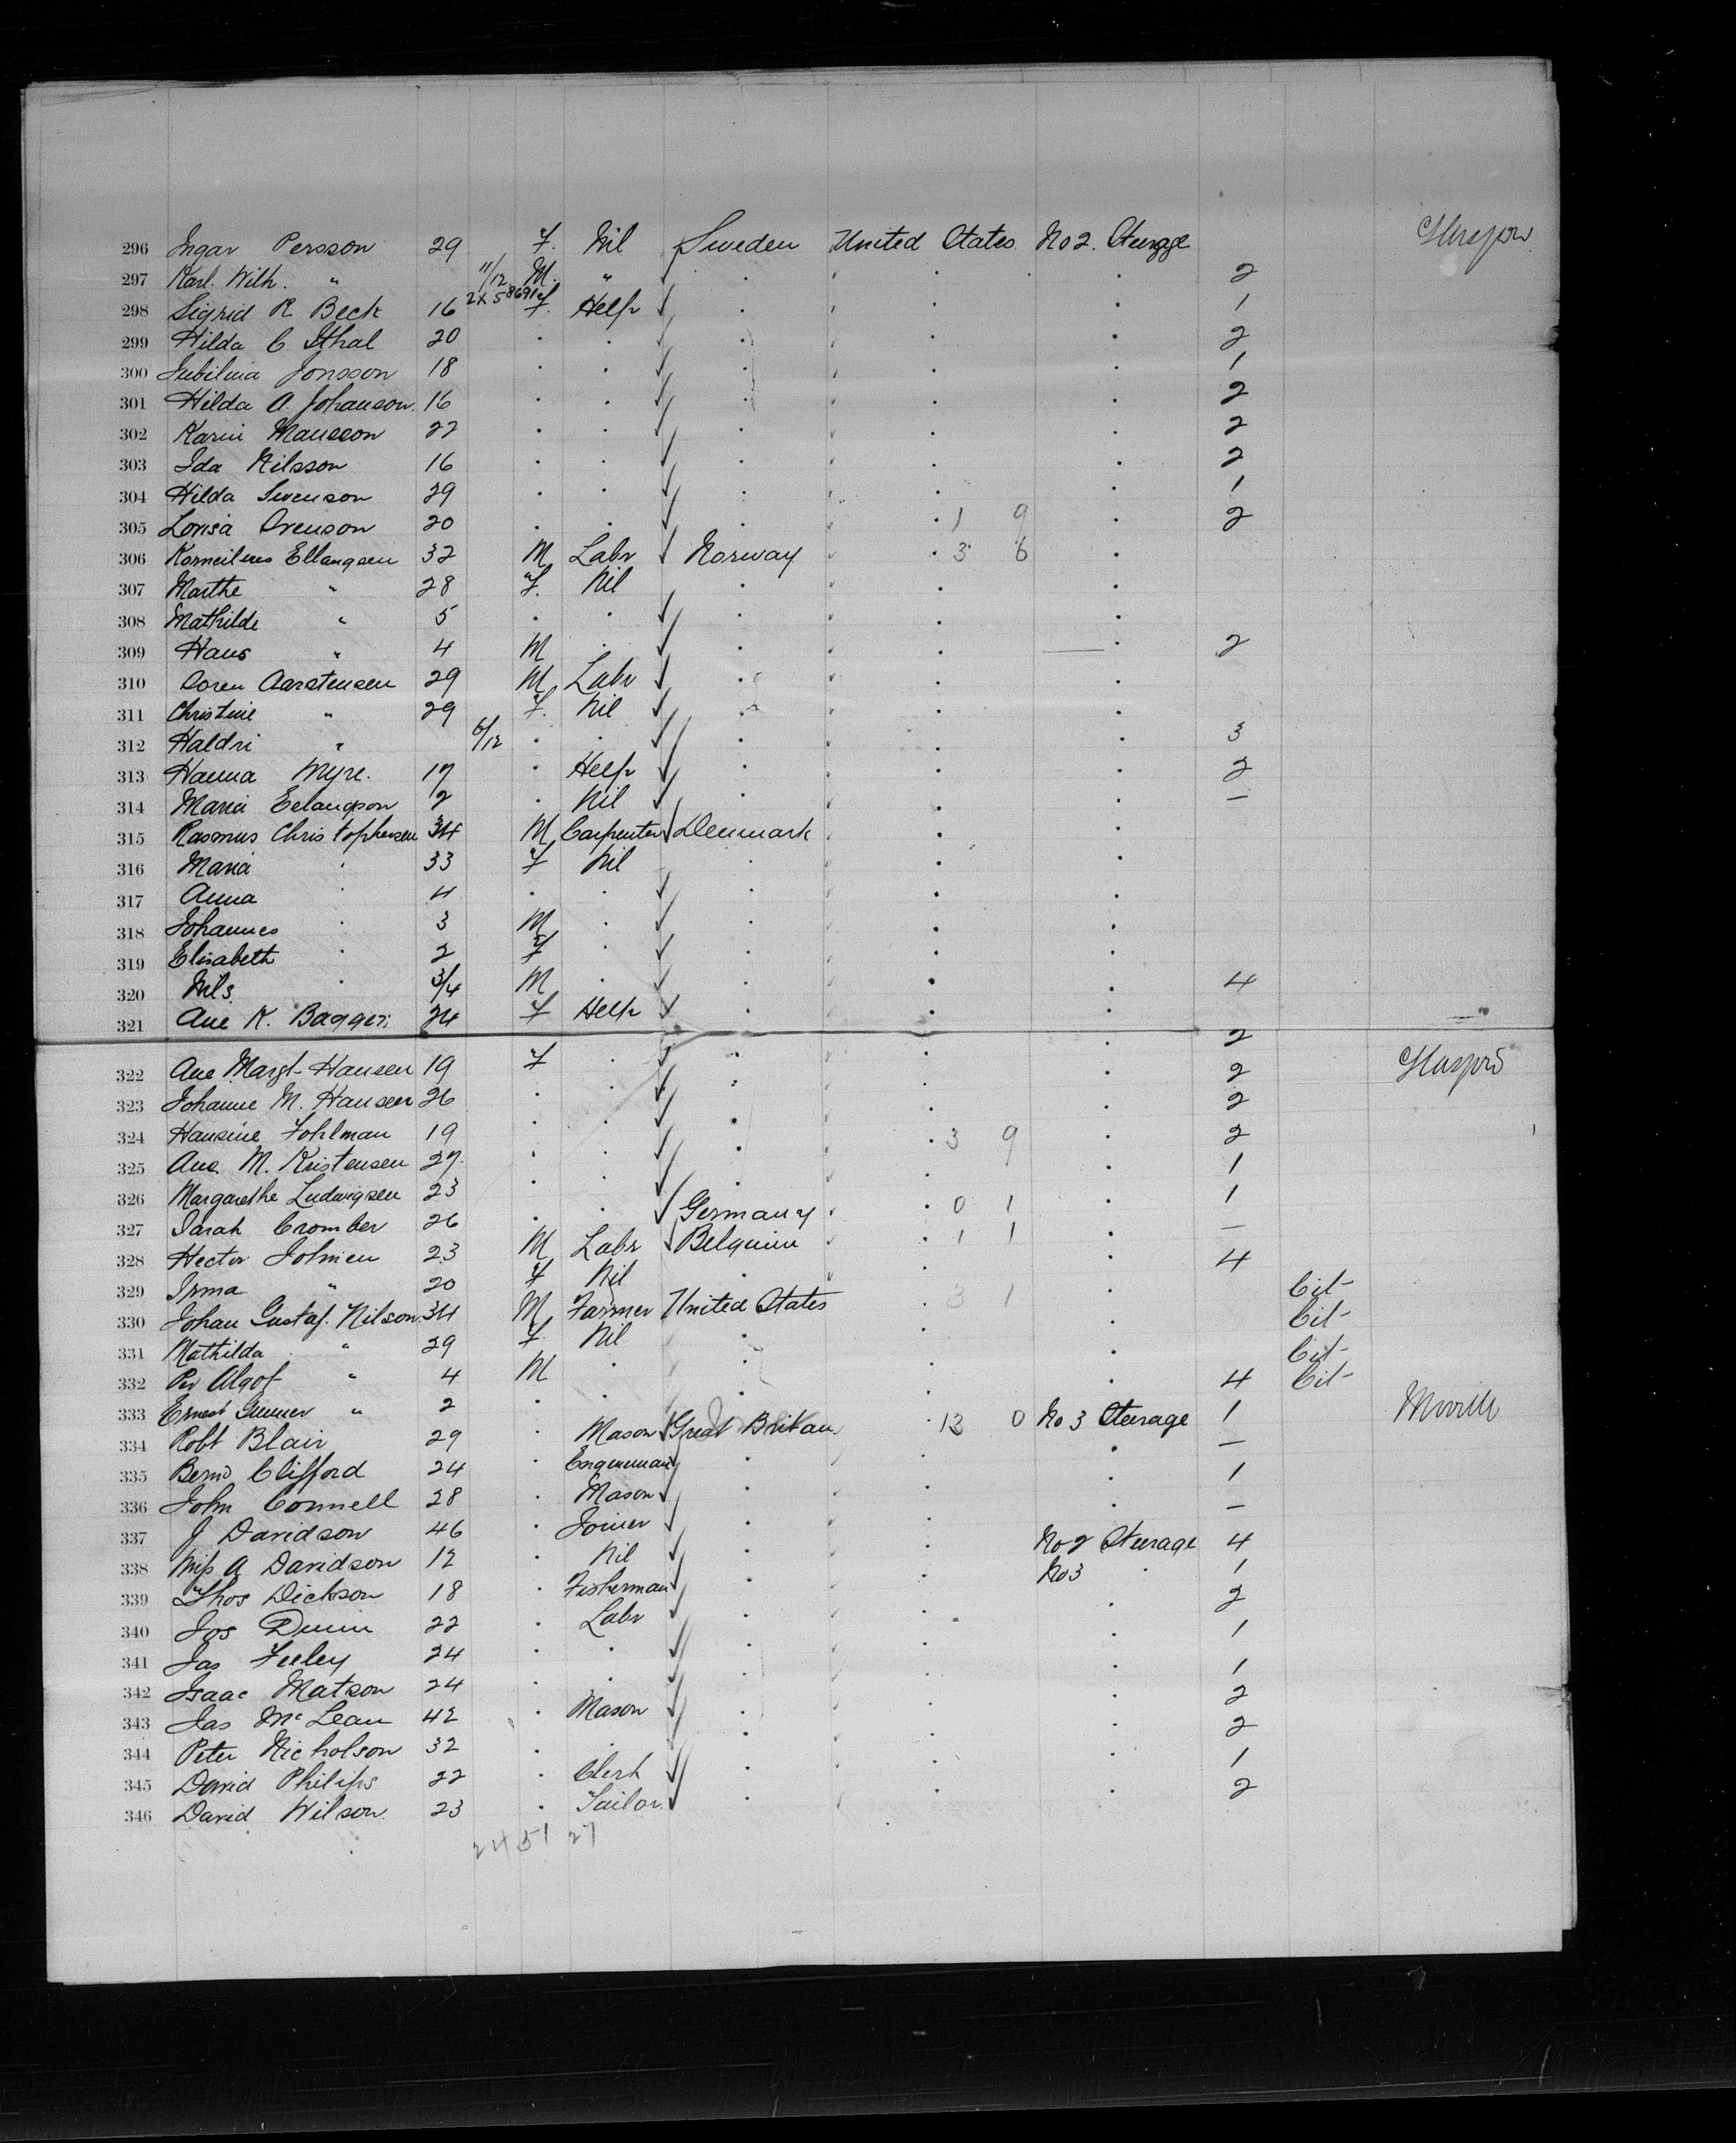 296 Ingar Persson 29 F. Nil Sweden United States No 2. Steerage Glasgow
297 Karl. Wilh. " 11/12 M. " . . . . 2
298 Sigrid R. Beck 16 2X58691 F. Help ✓ . . . . 1
299 Hilda C 20 . . ✓ . . . . 2
300 Jonsson 18 . . ✓ . . . . 1
301 Hilda A. Johanson. 16 . . ✓ . . . . 2
302 Karin Mansson 22 . . ✓ . . . . 2
303 Ida Nilsson 16 . . ✓ . . . . 2
304 Hilda Swenson 29 . . ✓ . . . . 1
305 Lovisa 20 . . ✓ . . . 1 9 . 2
306 Ellangsen 32 M Labr ✓ Norway . . 3 6 .
307 Marthe " 28 F. Nil . . . .
308 Mathilde " 5 . . ✓ . . . .
309 Hans " 4 M . ✓ . . . — . 2
310 Soren Aarstensen 29 M Labr ✓ . . . .
311 Christine " 29 F. Nil ✓ . . . .
312 Haldri " 6/12 . . ✓ . . . . 3
313 Hanna Myre. 17 . Help ✓ . . . . 2
314 Maria 2 . Nil ✓ . . . . —
315 Rasmus Christophersen 34 M Carpenter ✓ Denmark . . .
316 Maria . 33 F Nil . . . .
317 Anna . 4 . . ✓ . . . .
318 Johannes . 3 M . ✓ . . . .
319 Elisabeth . 2 F . ✓ . . . .
320 Nils. . 3/4 M . ✓ . . . . 4
321 Ane K. Bagger 24 F Help ✓ . . . . 2
322 Ane Margt Hansen 19 F . ✓ . . . . 2 Glasgow
323 Johanne M. Hansen 26 . . ✓ . . . . 2
324 Hansine Fohlman 19 . . ✓ . . . 3 9 . 2
325 Ane. M. Kristensen 27. . . ✓ . . . . 1
326 Margarethe Ludwigsen 23 . . ✓ Germany . . 0 1 . 1
327 Sarah Cromber 26 . . ✓ Belguim . . 1 1 . —
328 Hector 23 M Labr ✓ . . . 4
329 Irma " 20 F Nil . . . . Cit-
330 Johan Gustaf. Nilson. 34 M Farmer United States . 3 1 . Cit-
331 Mathilda " 29 F. Nil . . . Cit-
332 Per Algof " 4 M . . . . 4 Cit-
333 Ernest Gunner " 2 . . . .
334 Robt Blair 29 . Mason ✓ Great Britain . 13 0 No 3 Steerage 1 Moville
335 Bernd Clifford 24 . Engineman ✓ . . . . —
336 John Connell 28 . Mason ✓ . . . . 1
337 J Davidson 46 . Joiner ✓ . . . . —
338 Miss A Davidson 12 . Nil ✓ . . . No 2 Steerage 4
339 Thos Dickson 18 . Fisherman ✓ . . . No 3 . 1
340 Jos Dunn 22 . Labr ✓ . . . . 2
341 Jas Feeley 24 . . ✓ . . . . 1
342 Isaac Matson 24 . . ✓ . . . . 1
343 Jas McLean 42 . Mason ✓ . . . . 2
344 Peter Nicholson 32 . . ✓ . . . . 2
345 David Philips 22 . Clerk ✓ . . . . 1
346 David Wilson 23 . Tailor. ✓ . . . . 2
24 51 27